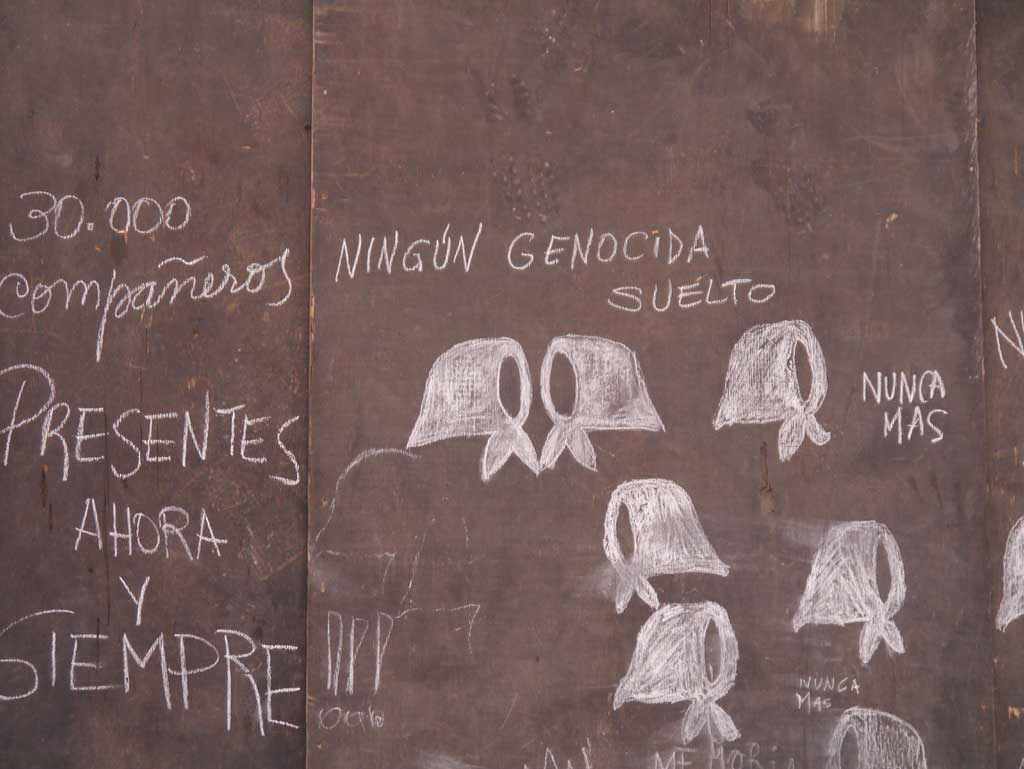 30.000
compañeros
PRESENTES
AHORA
Y
SIEMPRE
NINGÚN GENOCIDA
SUÉLTO
NUNCA
MAS
NUNCA
MAS
MEMORIA